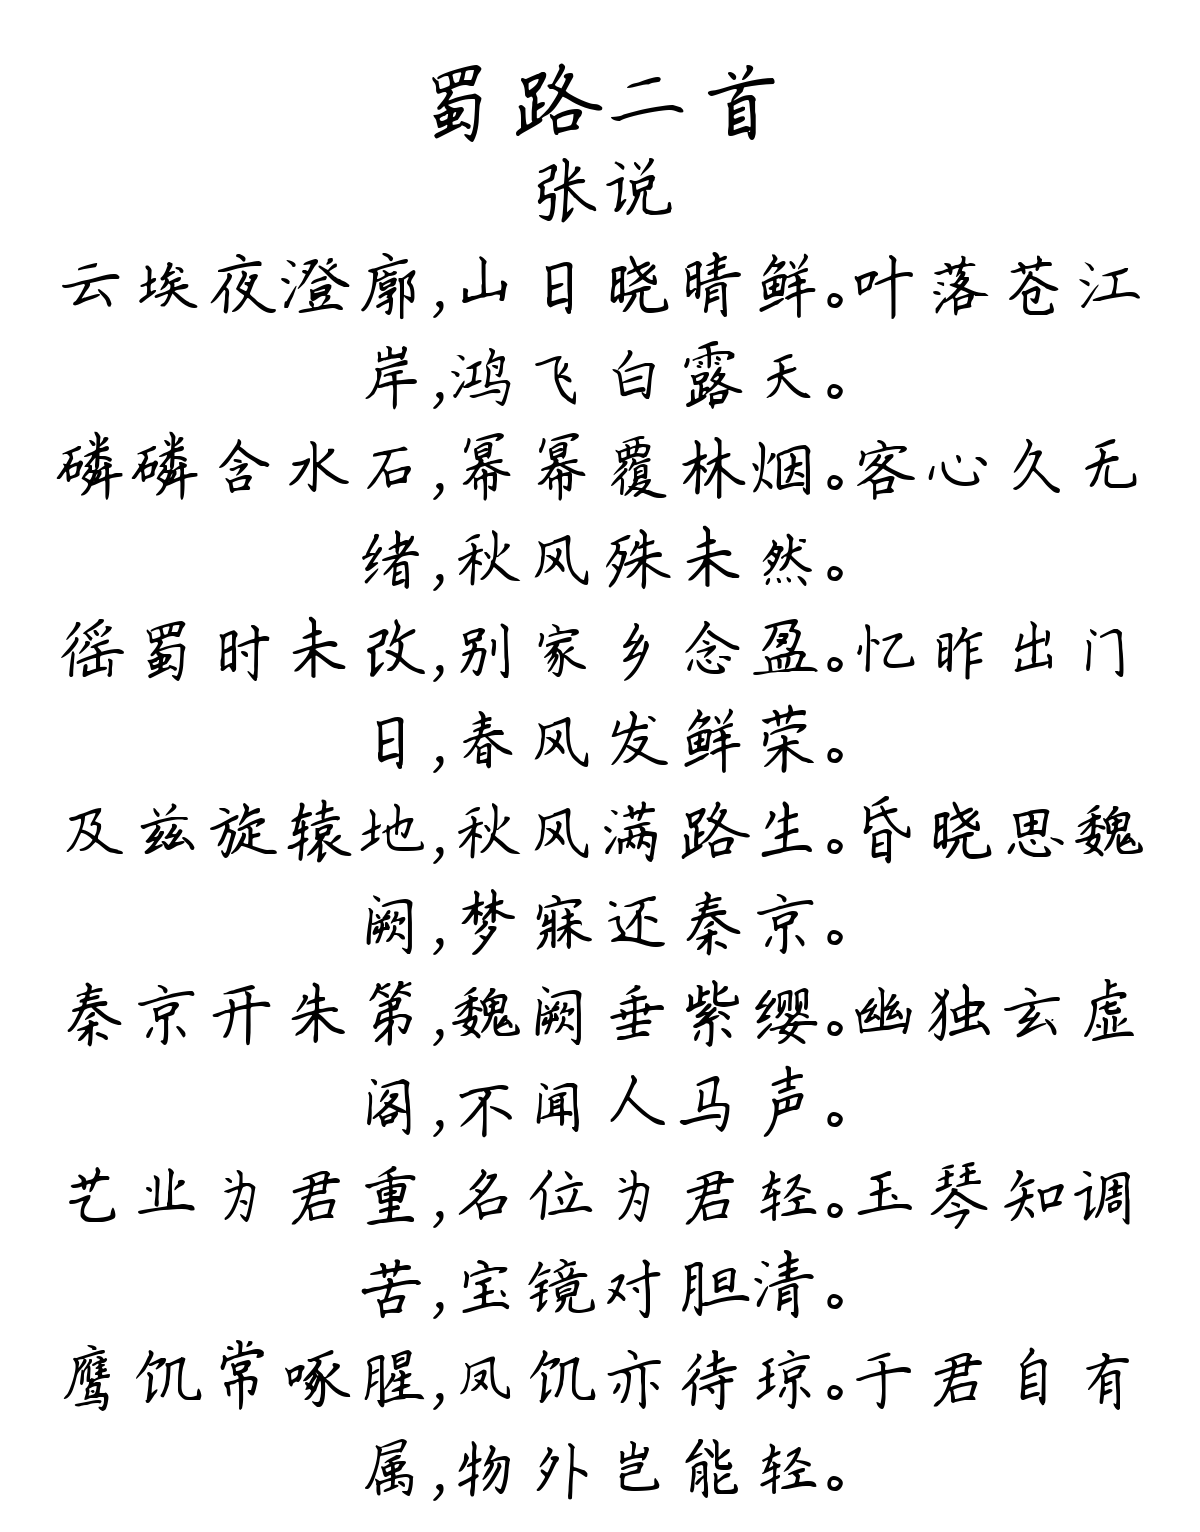 蜀路二首
张说
云埃夜澄廓,山日晓晴鲜。叶落苍江
岸,鸿飞白露天。
磷磷含水石,幂幂覆林烟。客心久无
绪,秋风殊未然。
徭蜀时未改,别家乡念盈。忆昨出门
日,春风发鲜荣。
及兹旋辕地,秋风满路生。昏晓思魏
阙,梦寐还秦京。
秦京开朱第,魏阙垂紫缨。幽独玄虚
阁,不闻人马声。
艺业为君重,名位为君轻。玉琴知调
苦,宝镜对胆清。
鹰饥常啄腥,凤饥亦待琼。于君自有
属,物外岂能轻。